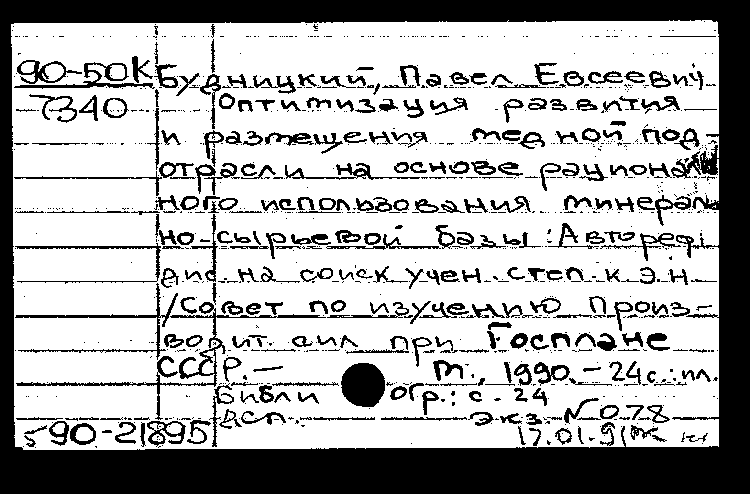 90-50К Будницкий, Павел Евсеевич
7340 Оптимизация развития
и размещения медной под-
отрасли на основе рациональ
ного использования минераль
но-сырьевой базы : Автореф.
дис. на соиск учен. степ. к.э.н.
/Совет по изучению произ-
водит. сил при Госплане
СССР. — М., 1990. - 24 с.: ил.
Библиогр.: с. 24
ДСП. Экз. №078
590-21895 17.01.91